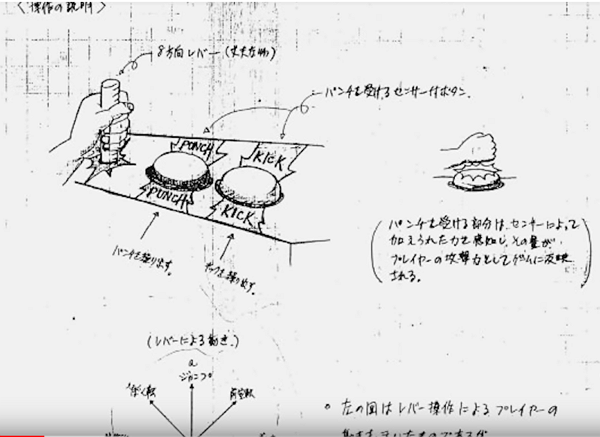 〈操作の説明〉
8方向レバー(丈夫な物)
パンチを受けるセンサー付ボタン.
PUNCH
KICK
PUNCH
KICK
パンチを繰り出す。
キックを繰り出す。
(パンチを受ける部分は、センサーによって
加えられた力を感知し、その量が、
プレイヤーの攻撃力としてゲームに反映
される。)
(レバーによる動き.)
ジャンプ
前空転
左の図はレバー操作によるプレイヤーの